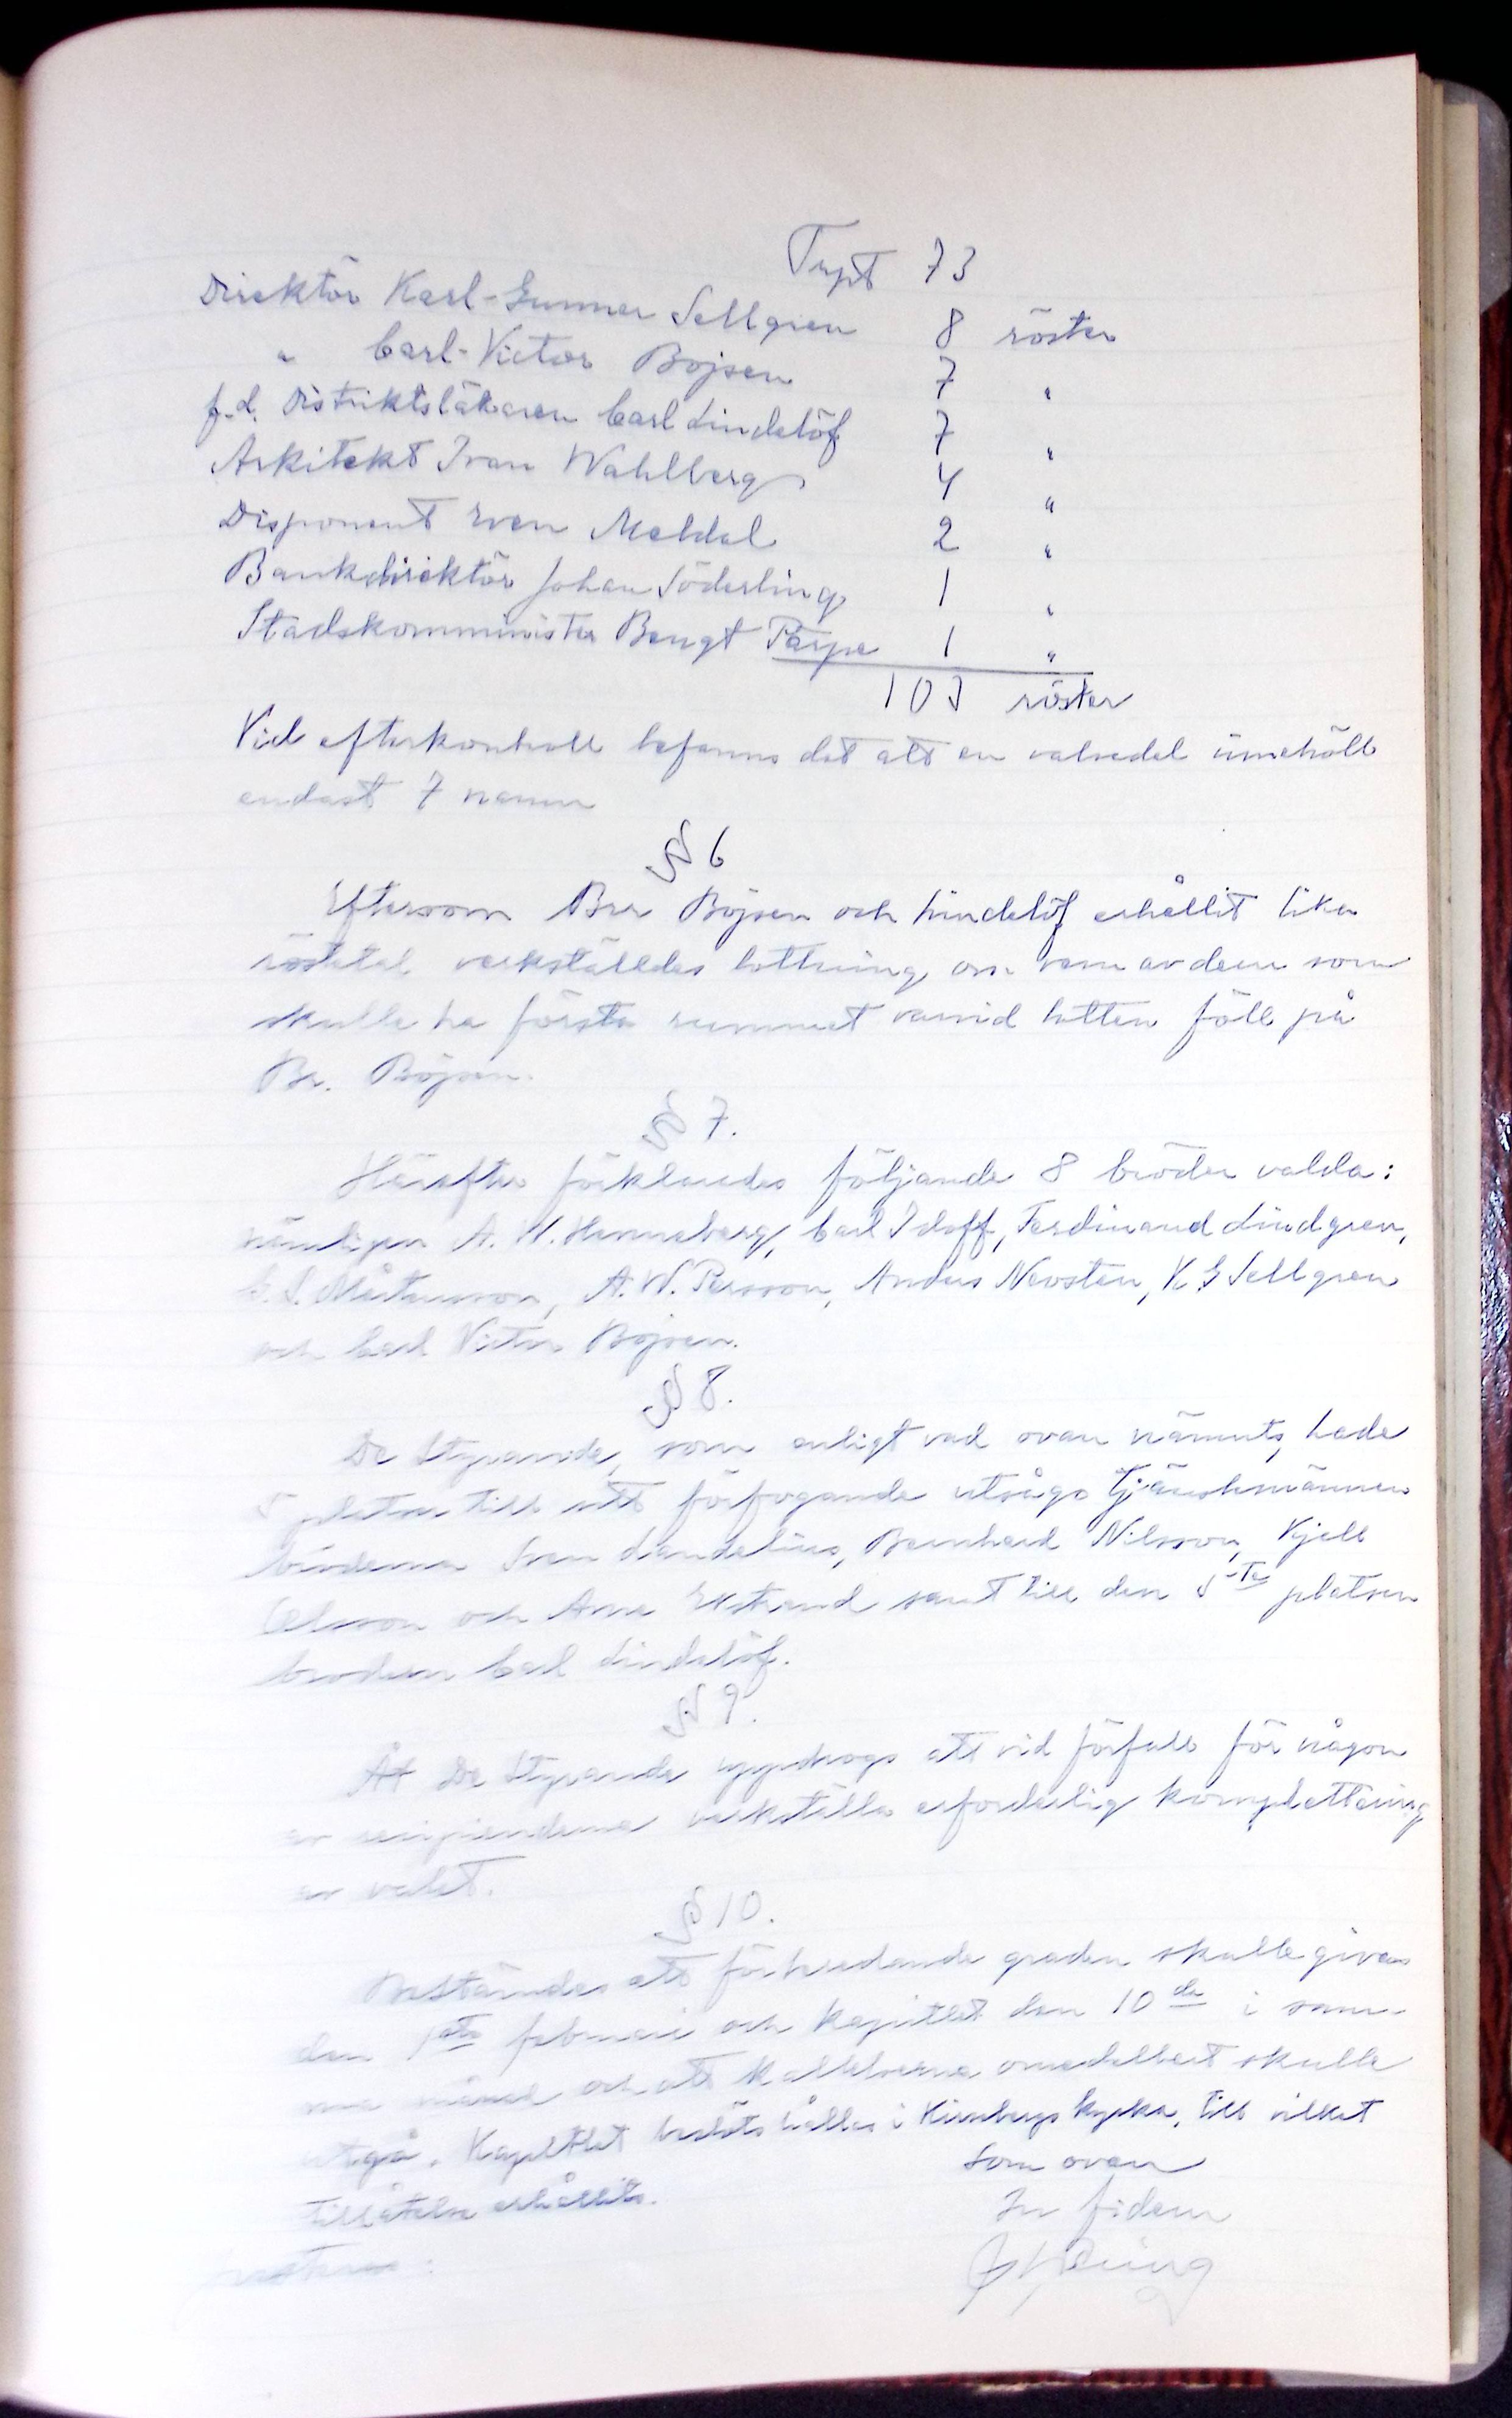 Trpt 73
Direktör Karl-Gunnar Sellgren 8 röster
" Carl-Victor Bojsen 7 "
f.d. Distriktsläkaren Carl Lindelöf 7 "
Arkitekt Ivan Wahlberg 4 "
Disponent Sven Meldal 2 "
Bankdirektör Johan Söderling 1 "
Stadskomminister Bengt 1 "
103 röster
Vid efterkontroll befanns det att en valsedel innehöll
endast 7 namn
§ 6
Eftersom Brr Bojsen och Lindelöf erhållit lika
röstetal verkställdes lottning om vem av dem som
skulle ha första rummet varvid lotten föll på
Br. Bojsen.
§ 7.
Härefter förklarades följande 8 bröder valda:
nämligen A. W. Henneberg, Carl Idoff, Ferdinand Lindgren,
A. W. Persson, Anders Nevsten, K G Sellgren
och Carl Victor Bojsen.
§ 8.
De Styrande, som enligt vad ovan nämnts, hade
5 platser till sitt förfogande utsågo tjänstemännen
bröderna Sven Landelius, Bernhard Nilsson, Kjell
Olsson och Arne Ekstrand samt till den 5-te platsen
brodern Carl Lindelöf.
§ 9.
Åt De Styrande uppdrogs att vid förfall för någon
av recipienderna verkställa erforderlig komplettering
av valet.
§ 10.
Bestämdes att förberedande graden skulle givas
den 1sta februari och kapitlet den 10de i sam-
ma månad och att kallelserna omedelbart skulle
utgå. Kapitlet beslöts hållas i kyrka, till vilket
tillåtelse erhållits.
Som ovan
In fidem
Justeras: